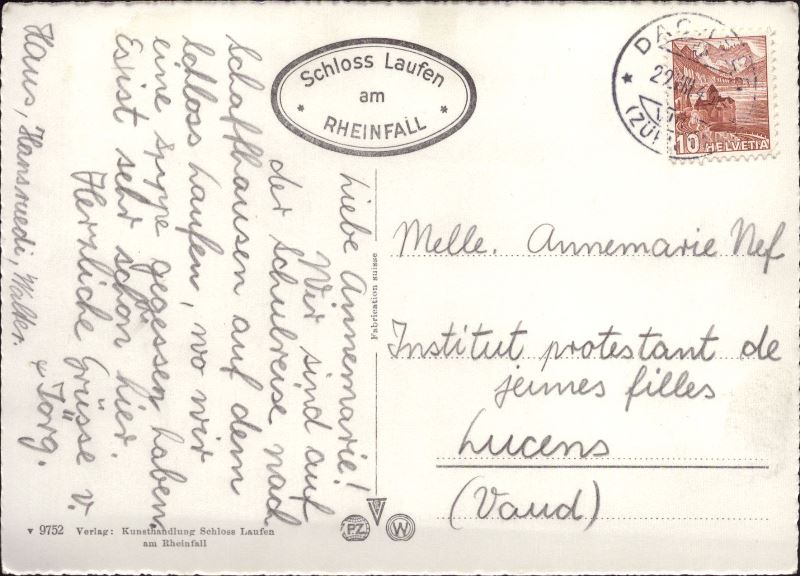 Schloss Laufen
am
RHEINFALL
Liebe Annemarie!
Wir sind auf
der Schulreise nach
Schaffhausen auf dem
Schloss Laufen, wo wir
eine Suppe gegessen haben.
Es ist sehr schön hier.
Herzliche Grüsse v.
Hans, Hansruedi, Walter. & Jörg.
HELVETIA
10
Fabrication suisse
Melle. Annemarie Nef
Institut protestant de
jeunes filles
Lucens
(Vaud)
9752 Verlag: Kunsthandlung Schloss Laufen
am Rheinfall
PZ
W